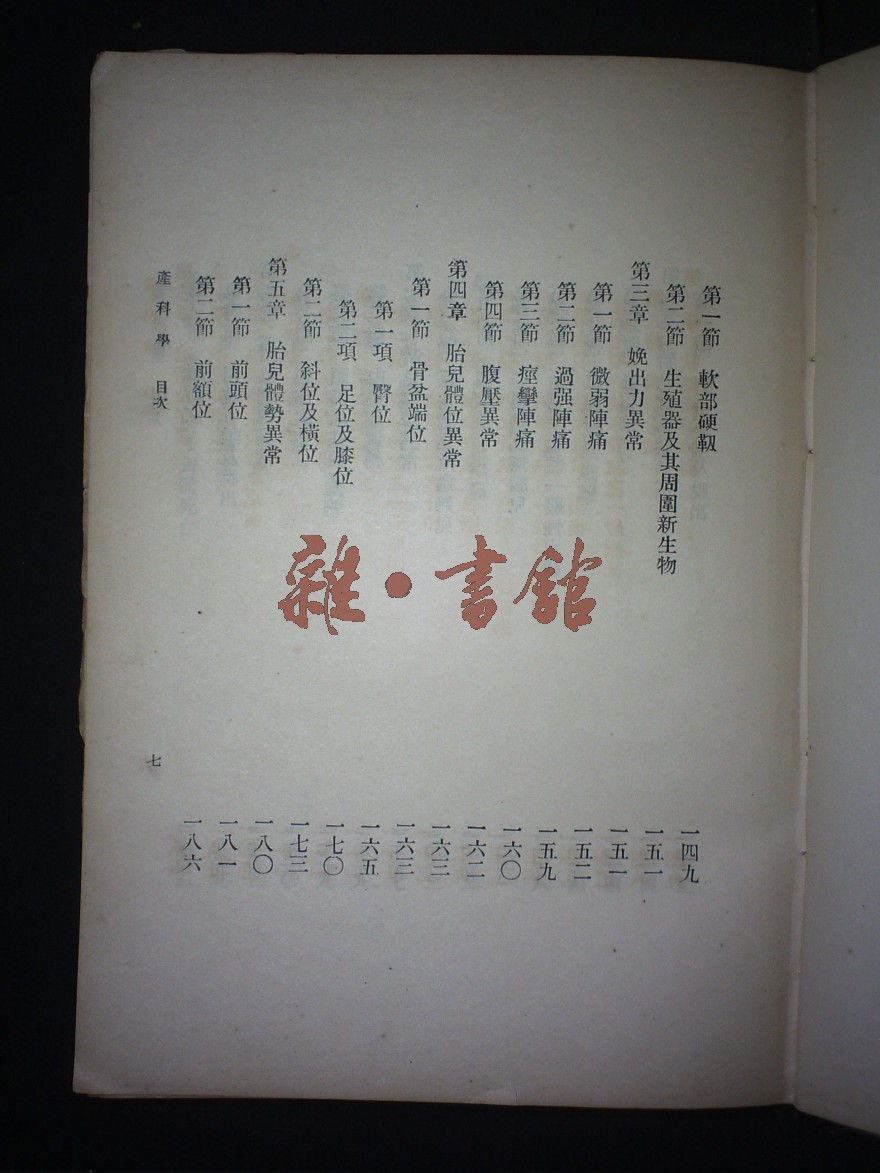 第一節 軟部硬靱 一四九
第二節 生殖器及其周圍新生物 一五一
第三章 娩出力異常 一五一
第一節 微弱陣痛 一五二
第二節 過强陣痛 一五九
第三節 痙攣陣痛 一六〇
第四節 腹壓異常 一六二
第四章 胎兒體位異常 一六三
第一節 骨盆端位 一六三
第一項 臀位 一六五
第二項 足位及膝位 一七〇
第二節 斜位及橫位 一七三
第五章 胎兒體勢異常 一八〇
第一節 前頭位 一八一
第二節 前額位 一八六
產科學 目次 七
雜·書館